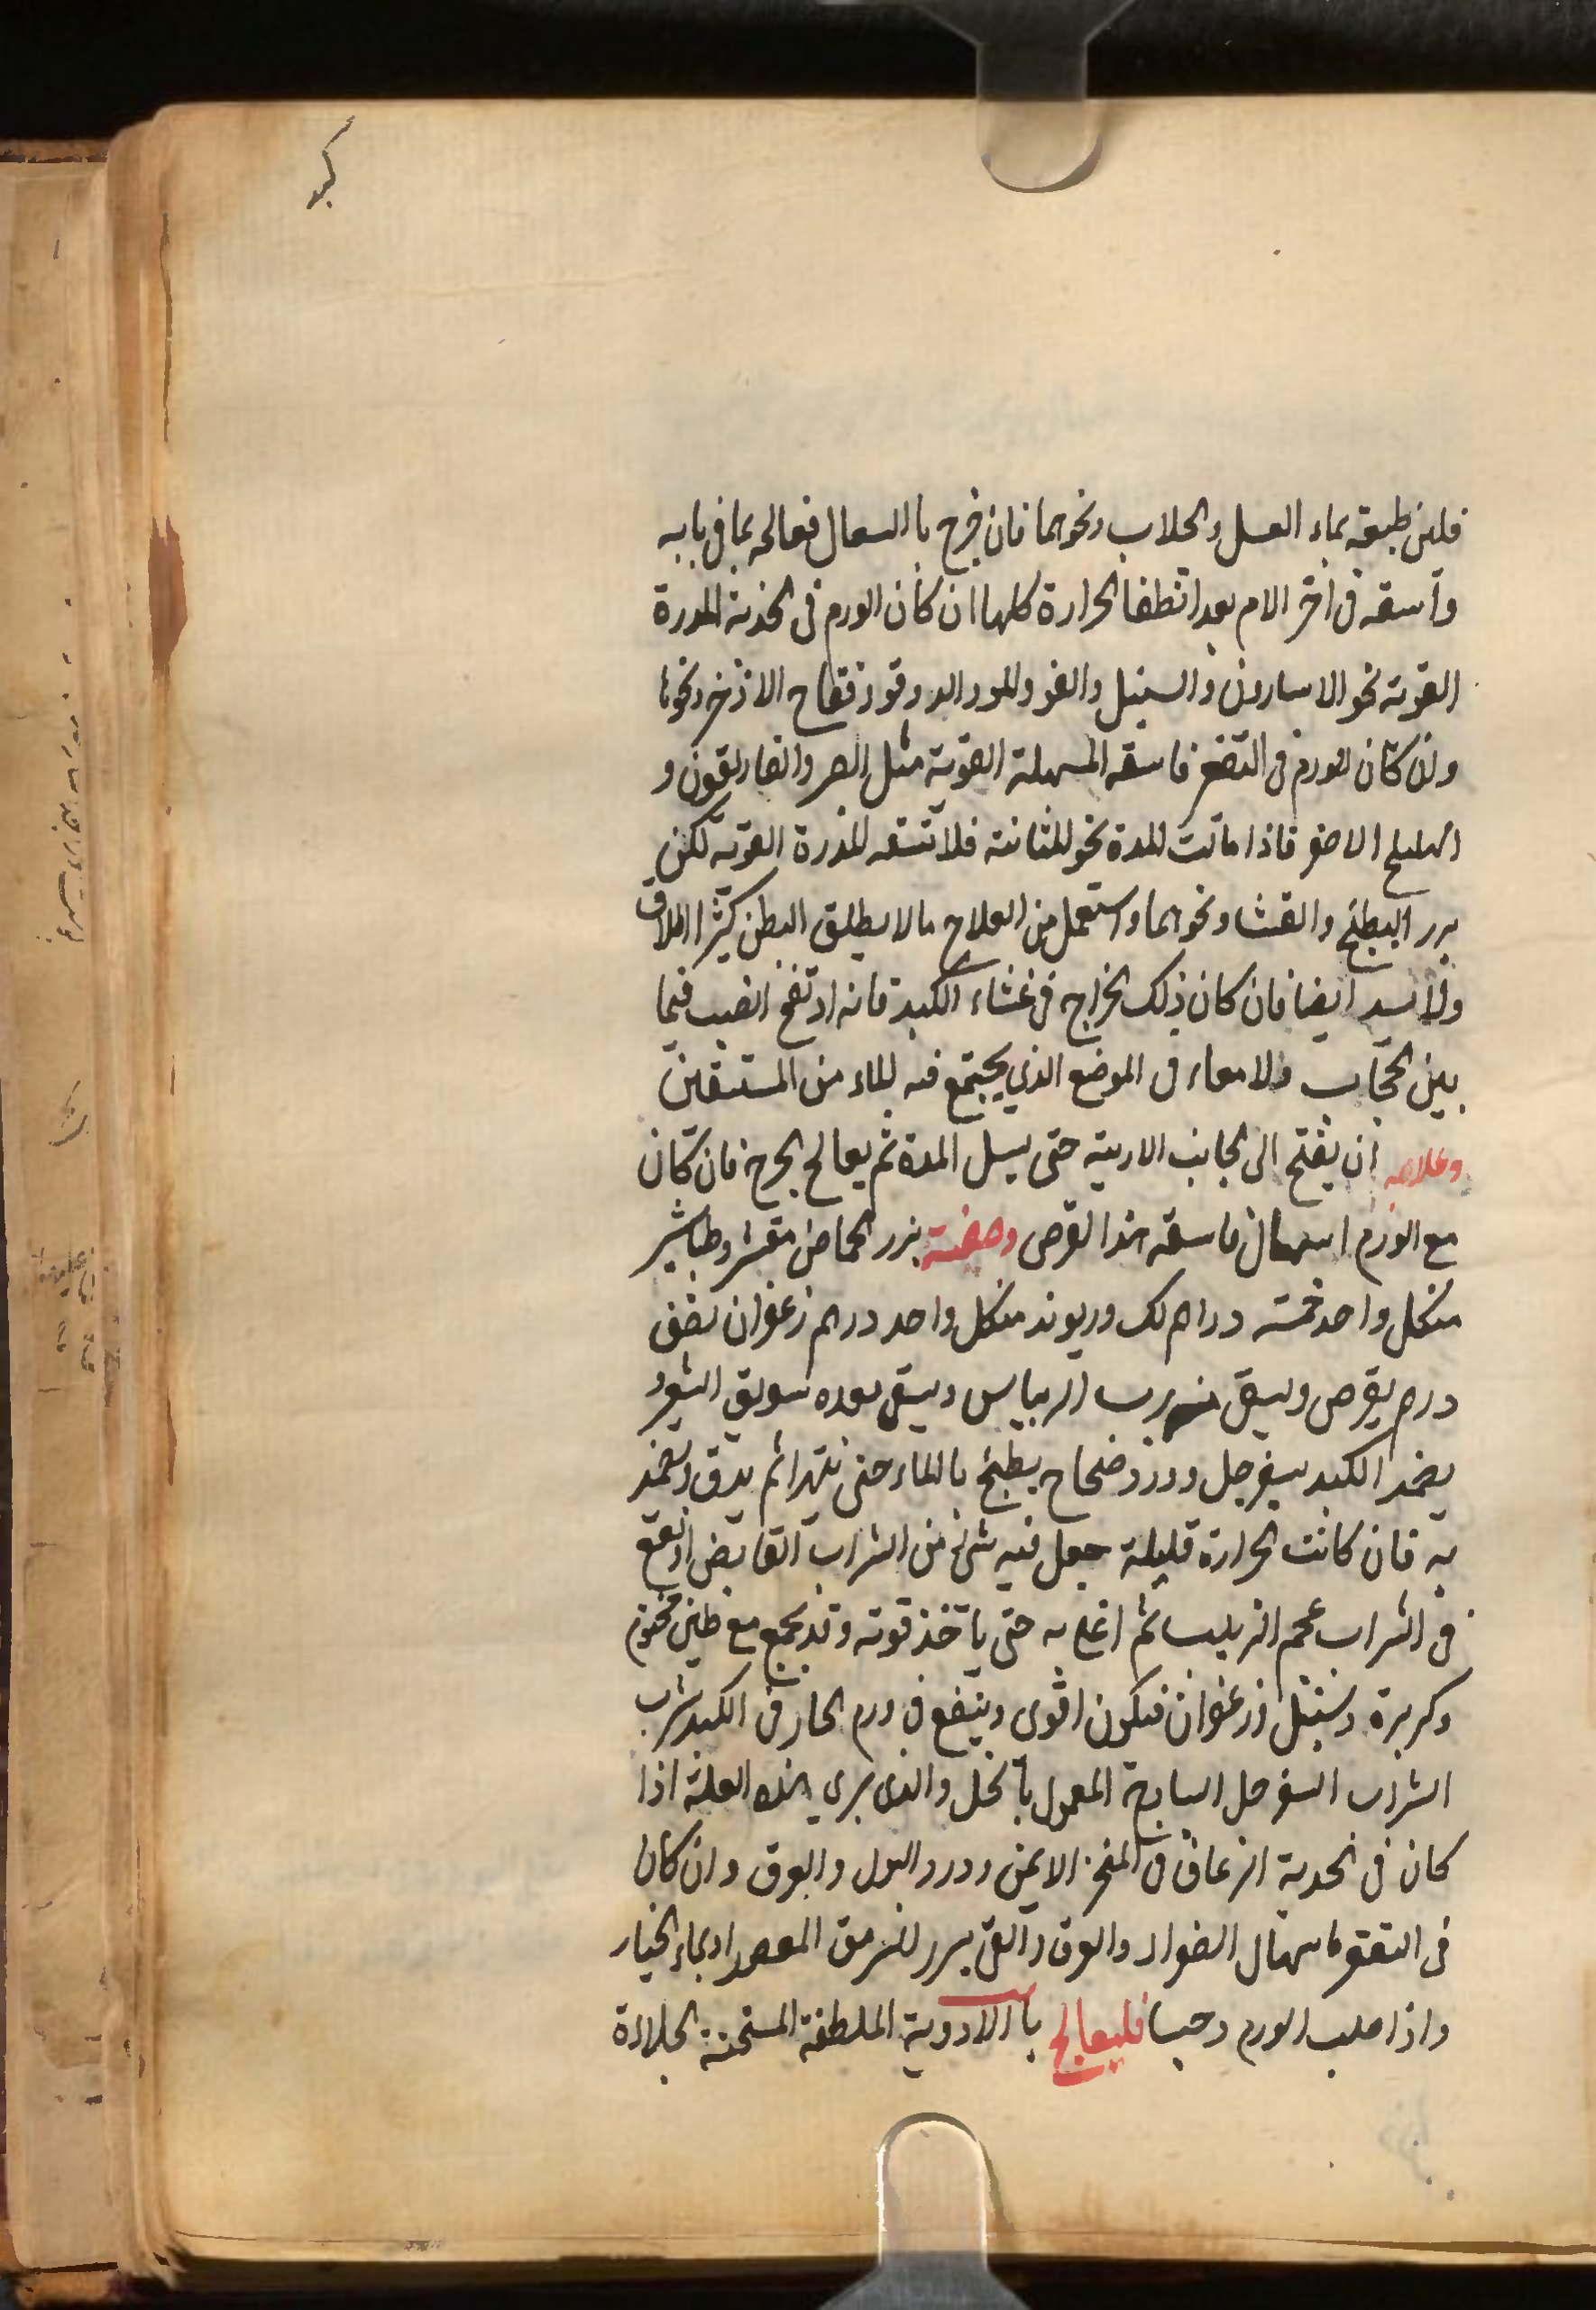 كبد
فلين طبيعته بماء العسل والجلاب ونحوهما فان خرج بالسعال فعالجه بما في بابه
واسقه في اخر الامر بعد انطفا الحرارة كلها ان كان الورم في الحدبة المدرة
القوية نحو الاسارون والسنبل والفو والمو والدوقو وفقاح الاذخر ونحوها
وان كان الورم في التقعر فاسقه المسهلة القوية مثل الصبر والغاريقون و
الهليلج الاصفر فاذا مالت المدة نحو المثانة فلا تسقه المدرة القوية لكن
بزر البطيخ والقثا ونحوهما واستعمل من العلاج ما لا يطلق البطن كثيرا اطلاق
ولا يسد ايضا فان كان ذلك الخراج في غشاء الكبد فانه اذ تفتح انصب فيما
بين الحجاب والامعاء في الموضع الذي يجتمع فيه الماء من المستسقين
وعلاجه ان يفتح الى جانب الاربية حتى يسيل المدة ثم يعالج الجرح فان كان
مع الورم اسهال فاسقه هذا القرص وصفته بزر الحماض مقشر وطباشير
من كل واحد خمسة دراهم لك وريوند من كل واحد درهم زعفران نصف
درهم يقرص ويسقى برب الريباس ويسقى بعده سويق الشعير
يضمد الكبد بسفرجل وورد وضحاح يطبخ بالماء حتى يتهرا ثم يدق ويضمد
به فان كانت الحرارة قليلة جعل فيه شئ من الشراب القابض او نقع
في الشراب عجم الزبيب ثم اغلي به حتى ياخذ قوته وقد يجمع مع طين مختوم
وكزبرة وسنبل وزعفران فيكون اقوى وينفع في ورم الحار في الكبد شرب
الشراب السفرجل الساذج المعمول بالخل والذي يبري هذه العلة اذا
كان في الحدبة الرعاف في المنخر الايمن ودرور البول والعرق وان كان
في التقعر فاسهال الصفراء والعرق والقئ ببزر السرمق المعصور او بماء الخيار
واذا صلب الورم وجسا فليعالج بالادوية الملطفة المسخنة الجلاءة